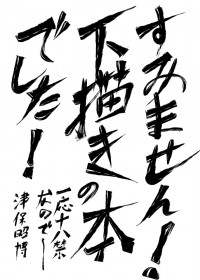 すみません!
下描きの本
でした!
一応十八禁
なので〜
津保昭博